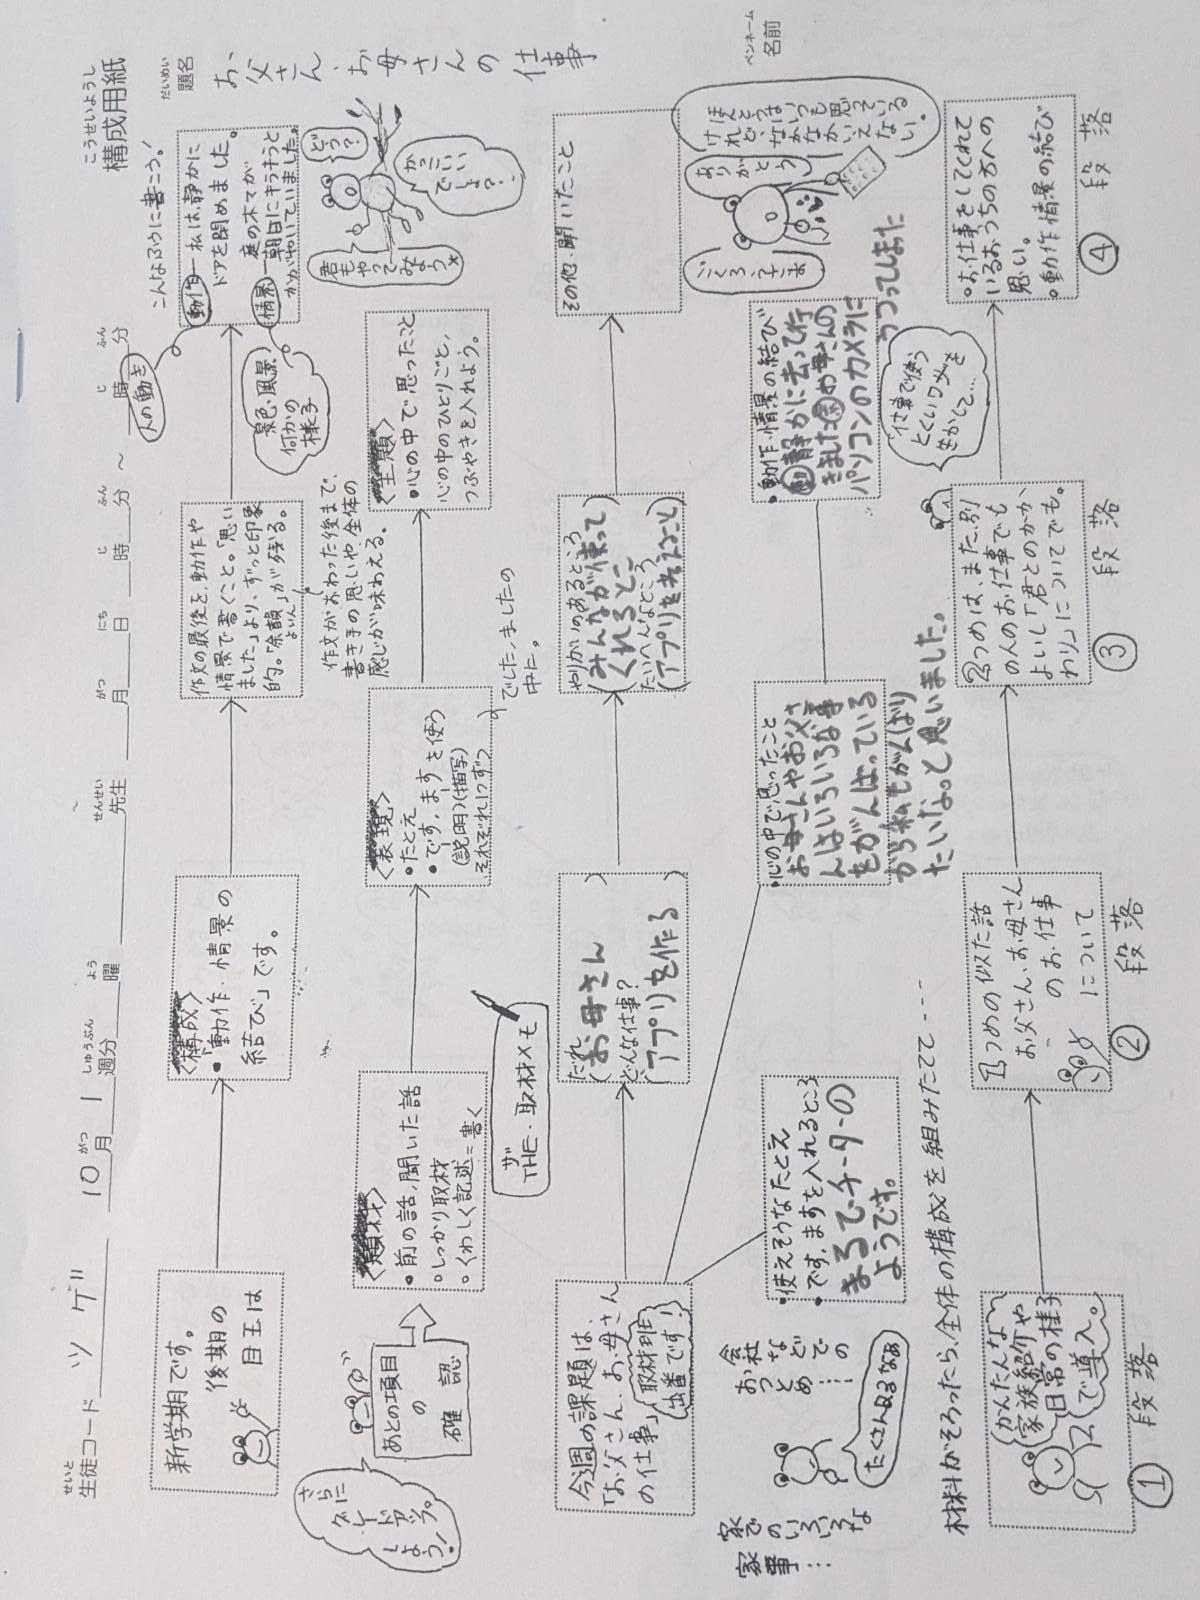 こうせいようし
構成用紙
せいと
生徒コード ツゲ 10月 1週分 曜 先生 月 日 時 分 ～ 時 分
がつ しゅうぶん よう せんせい がつ にち じ ふん じ ふん
だいめい
題名
お、父さん・お母さんの仕事
新学期です。
後期の
目玉は
〈構成〉
・「動作・情景の
結び」です。
作文の最後を、動作や
情景で書くこと。「思い
ました」より、ずっと印象
的。「余韻」が残る。
よいん
作文がおわった後まで、
書き手の思いや、全体の
感じが味わえる。
こんなふうに書こう!
動作―私は、静かに
ドアを閉めました。
情景―庭の木々が
朝日にキラキラと
かがやいていました。
人の動き
景色・風景
何かの
様子
さらに
グレードアップ。
しよう!
あとの項目
の
確認
〈題材〉
・前の話、聞いた話
・しっかり取材
・くわしく記述=書く
ザ
THE・取材メモ
〈表現〉
・たとえ
・です。ますを使う
(説明)(描写)
それぞれ1つずつ
でした、ましたの
中に。
〈主題〉
・心の中で思ったこと
心の中のひとりごと、
つぶやきを入れよう。
君も
やって
みよう
どう?
かっこいい
でしょ?!
今週の課題は、
「お父さん、お母さん
の仕事」
取材用
出番です!
だれ
(お母さん)
どんな仕事?
(アプリを作る)
やりがいのあるところ
(みんなが使って
くれるとこ)
たいへんなところ
(アプリを考えること)
その他・聞いたこと
家での
いろいろな
家事…
お会社
などで
つとめの…
たくさんあるなあ
・使えそうなたとえ
・です。ますを入れるところ
まるでチーターの
ようです。
・心の中で思ったこと
お母さんやお父さ
んはいろいろな事
をがんばっている
から私もがんばり
たいな。と思いました。
・動作・情景の結び
動静かに去って行
きました
お母さんの
パソコンのカメラに
うつってしまた
ごくろうさま
ありがとう
ほんとうは
いつも思っている
けれど、なかなかいえない。
ペンネーム
名前
材料がそろったら、全体の構成を組みたてて----
かんたんな
家族紹介や
日常の様子
で導入。
①段落
1つめの似た話
お父さん、お母さん
のお仕事
について
②段落
2つめは、また、別
の人のお仕事でも
よいし「君とのかか
わり」についてでも。
③段落
仕事で使う
とくいワザを
生かして…
・お仕事をしてくれて
いるおうちの方への
思い。
・動作・情景の結び
④段落